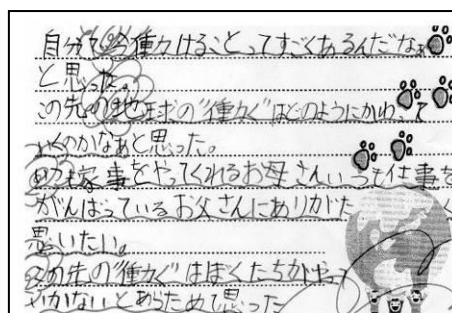 自分で今働力けることってすごくあるんだなぁ
と思った。
この先の地球の"働力く"はどのようにかわって
いくのかなあと思った。
家事をやってくれるお母さんいつも仕事を
がんばっているお父さんにありがた く
思いたい。
この先の"働力く"はぼくたちが
いかないとあらためて思った